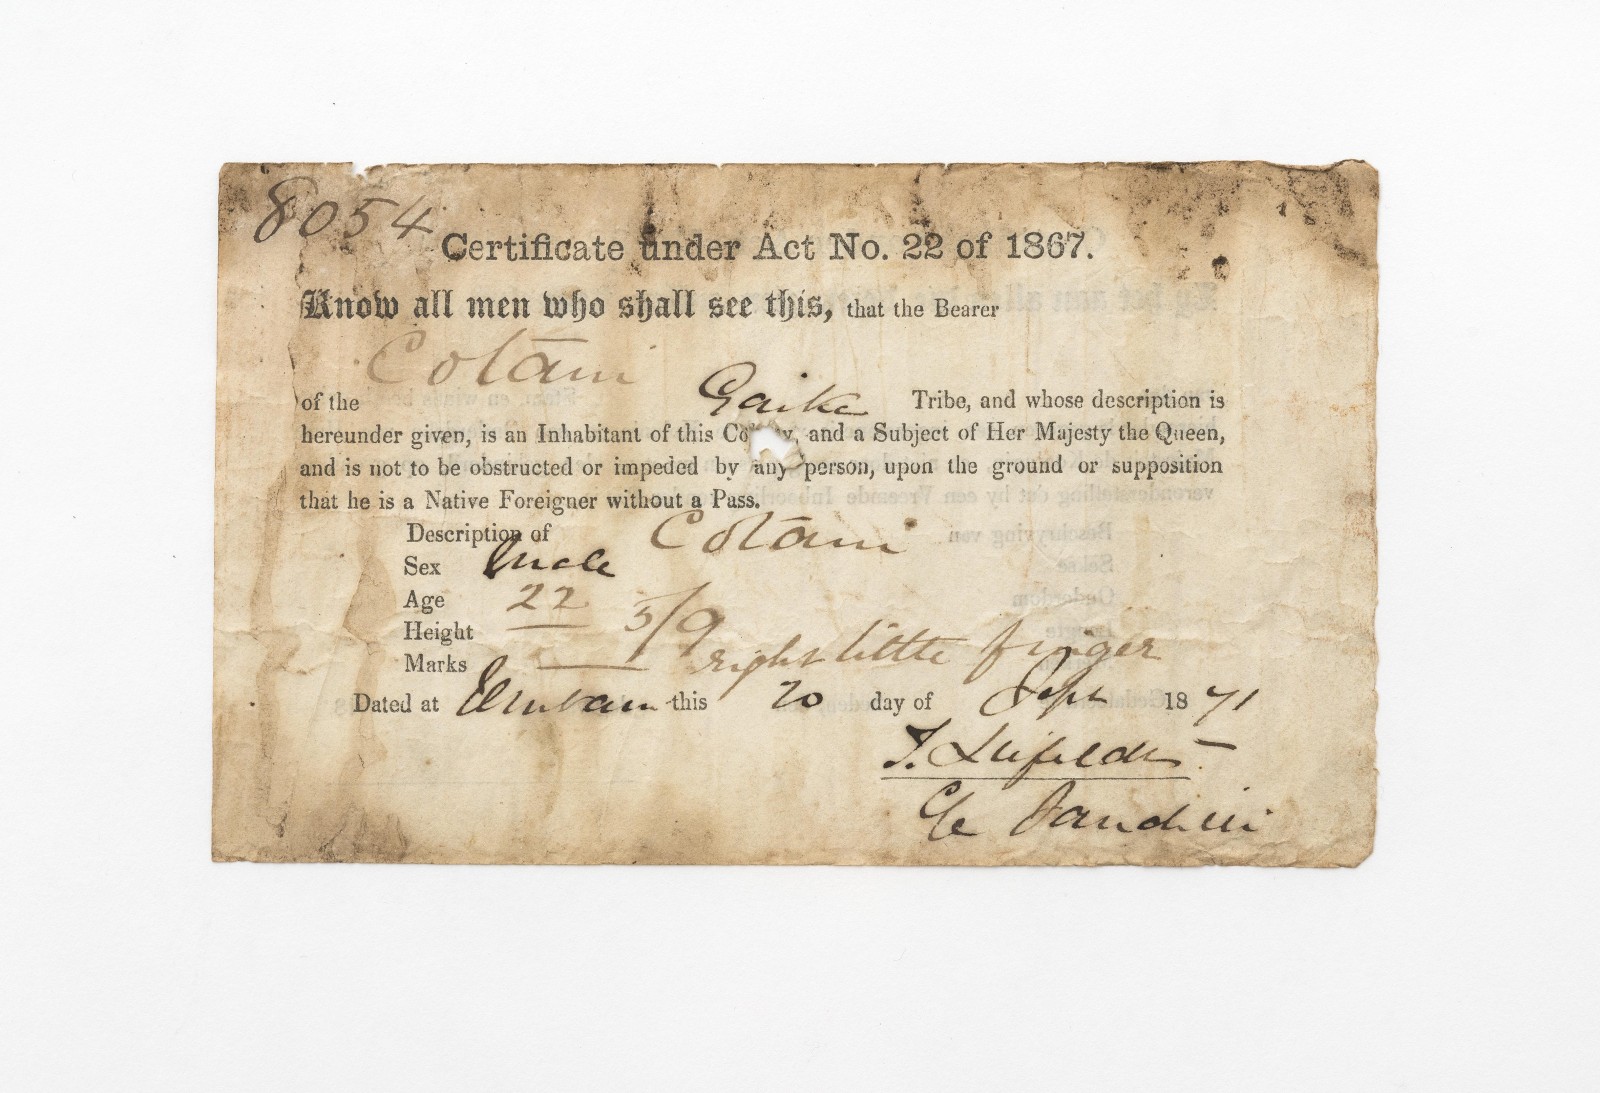 8054
Certificate under Act No. 22 of 1867.
Know all men who shall see this, that the Bearer
Cotani
of the Gaika Tribe, and whose description is
hereunder given, is an Inhabitant of this Co y, and a Subject of Her Majesty the Queen,
and is not to be obstructed or impeded by any person, upon the ground or supposition
that he is a Native Foreigner without a Pass.
Description of Cotani
Sex Male
Age 22
Height 5/9
Marks right little finger
Dated at this 20 day of Sept 1871